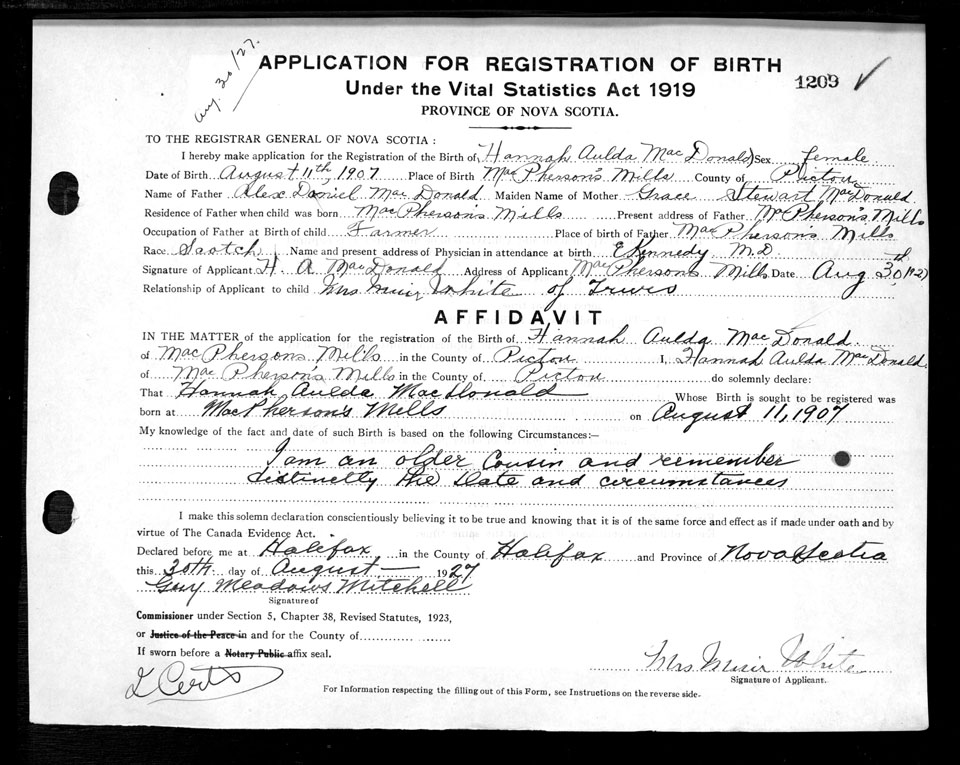 Aug. 30/27.
APPLICATION FOR REGISTRATION OF BIRTH
Under the Vital Statistics Act 1919
1209 ✓
PROVINCE OF NOVA SCOTIA.
TO THE REGISTRAR GENERAL OF NOVA SCOTIA:
I hereby make application for the Registration of the Birth of Hannah Aulda MacDonald Sex female
Date of Birth August 11th 1907 Place of Birth MacPherson's Mills County of Pictou
Name of Father Alex Daniel MacDonald Maiden Name of Mother Grace Stewart MacDonald
Residence of Father when child was born MacPhersons Mills Present address of Father McPherson's Mills
Occupation of Father at Birth of child Farmer Place of birth of Father MacPherson's Mills
Race Scotch Name and present address of Physician in attendance at birth E Kennedy M.D.
Signature of Applicant H. A MacDonald Address of Applicant MacPherson's Mills Date Aug 30th 1927
Relationship of Applicant to child Mrs Muir White of Truro
AFFIDAVIT
IN THE MATTER of the application for the registration of the Birth of Hannah Aulda MacDonald.
of MacPhersons Mills in the County of Pictou I, Hannah Aulda MacDonald
of MacPherson's Mills in the County of Pictou do solemnly declare:
That Hannah Aulda MacDonald Whose Birth is sought to be registered was
born at MacPherson's Mills on August 11, 1907
My knowledge of the fact and date of such Birth is based on the following Circumstances:—
I am an older Cousin and remember
distinctly the date and circumstances
I make this solemn declaration conscientiously believing it to be true and knowing that it is of the same force and effect as if made under oath and by
virtue of The Canada Evidence Act.
Declared before me at Halifax in the County of Halifax and Province of Nova Scotia
this 30th day of August — 1927
Guy Meadows Mitchell
Signature of
Commissioner under Section 5, Chapter 38, Revised Statutes, 1923,
or Justice of the Peace in and for the County of
If sworn before a Notary Public affix seal.
Mrs Muir White
Signature of Applicant.
For Information respecting the filling out of this Form, see Instructions on the reverse side.